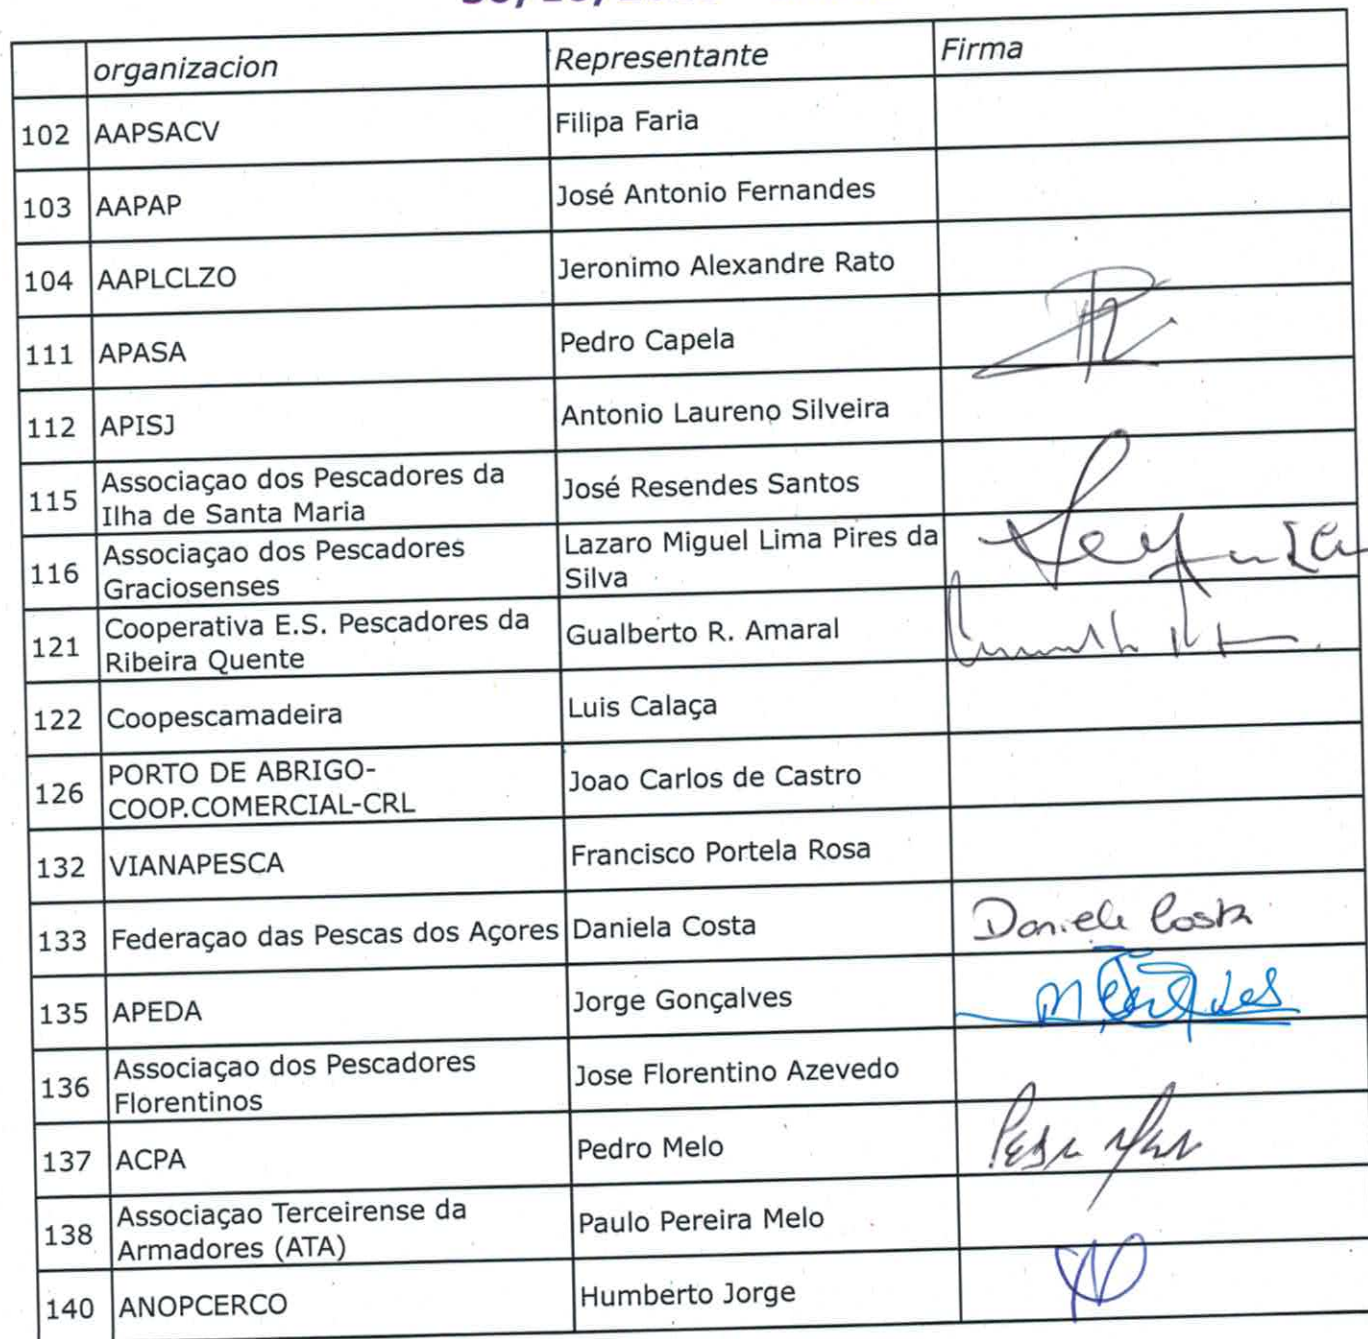 organizacion Representante Firma
102 AAPSACV Filipa Faria
103 AAPAP José Antonio Fernandes
104 AAPLCLZO Jeronimo Alexandre Rato
111 APASA Pedro Capela
112 APISJ Antonio Laureno Silveira
115 Associaçao dos Pescadores da
Ilha de Santa Maria José Resendes Santos
116 Associaçao dos Pescadores
Graciosenses Lazaro Miguel Lima Pires da
Silva
121 Cooperativa E.S. Pescadores da
Ribeira Quente Gualberto R. Amaral
122 Coopescamadeira Luis Calaça
126 PORTO DE ABRIGO-
COOP.COMERCIAL-CRL Joao Carlos de Castro
132 VIANAPESCA Francisco Portela Rosa
133 Federaçao das Pescas dos Açores Daniela Costa Daniela Costa
135 APEDA Jorge Gonçalves
136 Associaçao dos Pescadores
Florentinos Jose Florentino Azevedo
137 ACPA Pedro Melo
138 Associaçao Terceirense da
Armadores (ATA) Paulo Pereira Melo
140 ANOPCERCO Humberto Jorge